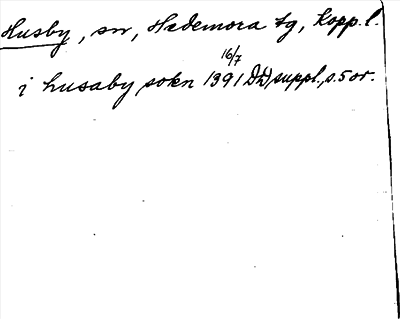 Husby, sn, Hedemora tg, Kopp. l.
i husaby sokn 1391 16/7 DD suppl., s. 5 or.